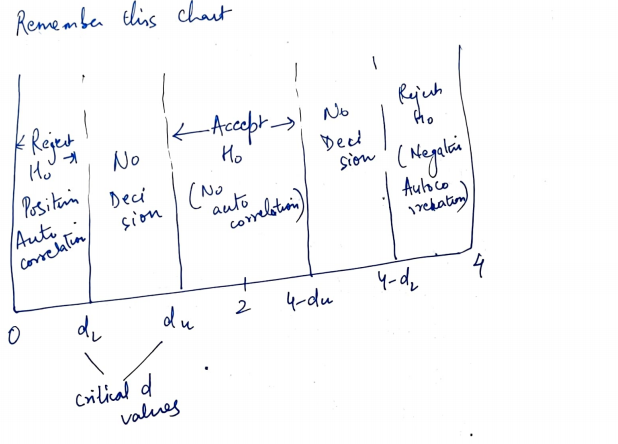 Remember this chart
Reject
H₀
Positive
Auto
correlation
No
Deci
sion
Accept
H₀
(No
auto
correlation)
No
Deci
sion
Reject
H₀
(Negative
Autoco
rrelation)
0
d_L
d_u
2
4-d_u
4-d_L
4
critical d
values